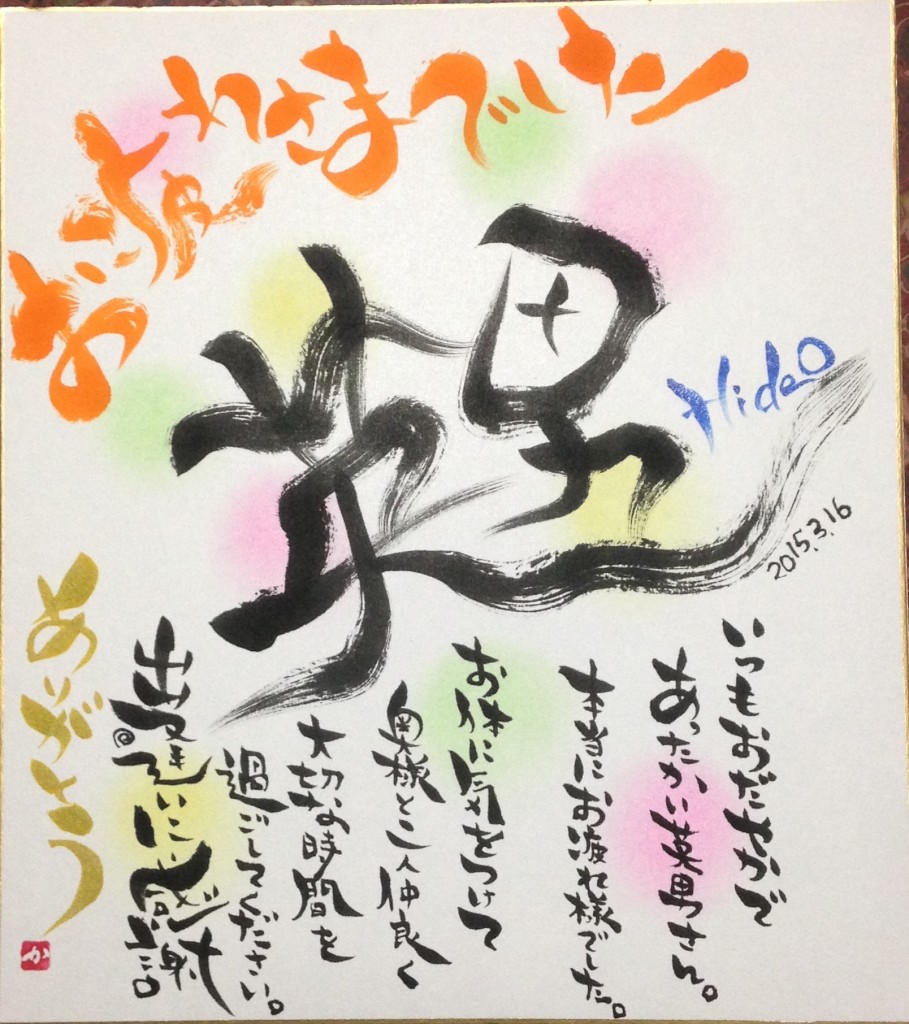 おつかれさまでした
英男
Hideo
2015.3.16
いつもおだやかで
あったかい英男さん。
本当にお疲れ様でした。
お体に気をつけて
奥様と二人仲良く
大切な時間を
過ごしてください。
出逢いに感謝
ありがとう
か